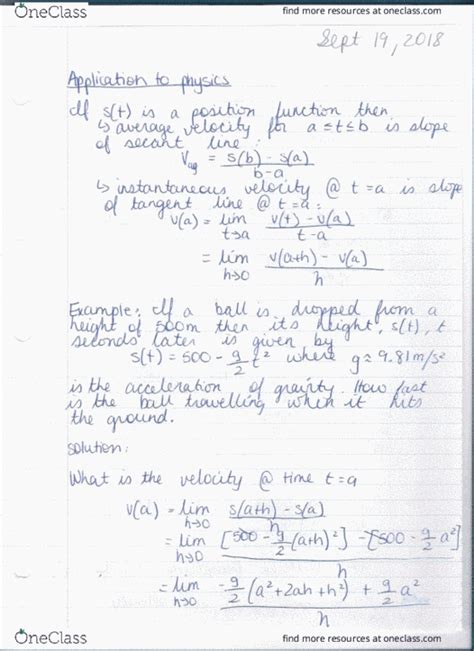 OneClass
find more resources at oneclass.com
Sept 19, 2018
Application to physics
If s(t) is a position function then
↳ average velocity for a ≤ t ≤ b is slope
of secant line:
Vavg = s(b) - s(a) / b-a
↳ instantaneous velocity @ t = a is slope
of tangent line @ t=a:
v(a) = lim t→a v(t) - v(a) / t-a
= lim h→0 v(a+h) - v(a) / h
Example: If a ball is dropped from a
height of 500m then its height, s(t), t
seconds later is given by
s(t) = 500 - g/2 t² where g ≈ 9.81 m/s²
is the acceleration of gravity. How fast
is the ball travelling when it hits
the ground.
solution:
What is the velocity @ time t=a
v(a) = lim h→0 s(a+h) - s(a) / h
= lim h→0 [500 - g/2 (a+h)²] - [500 - g/2 a²] / h
= lim h→0 -g/2 (a² + 2ah + h²) + g/2 a² / h
OneClass
find more resources at oneclass.com